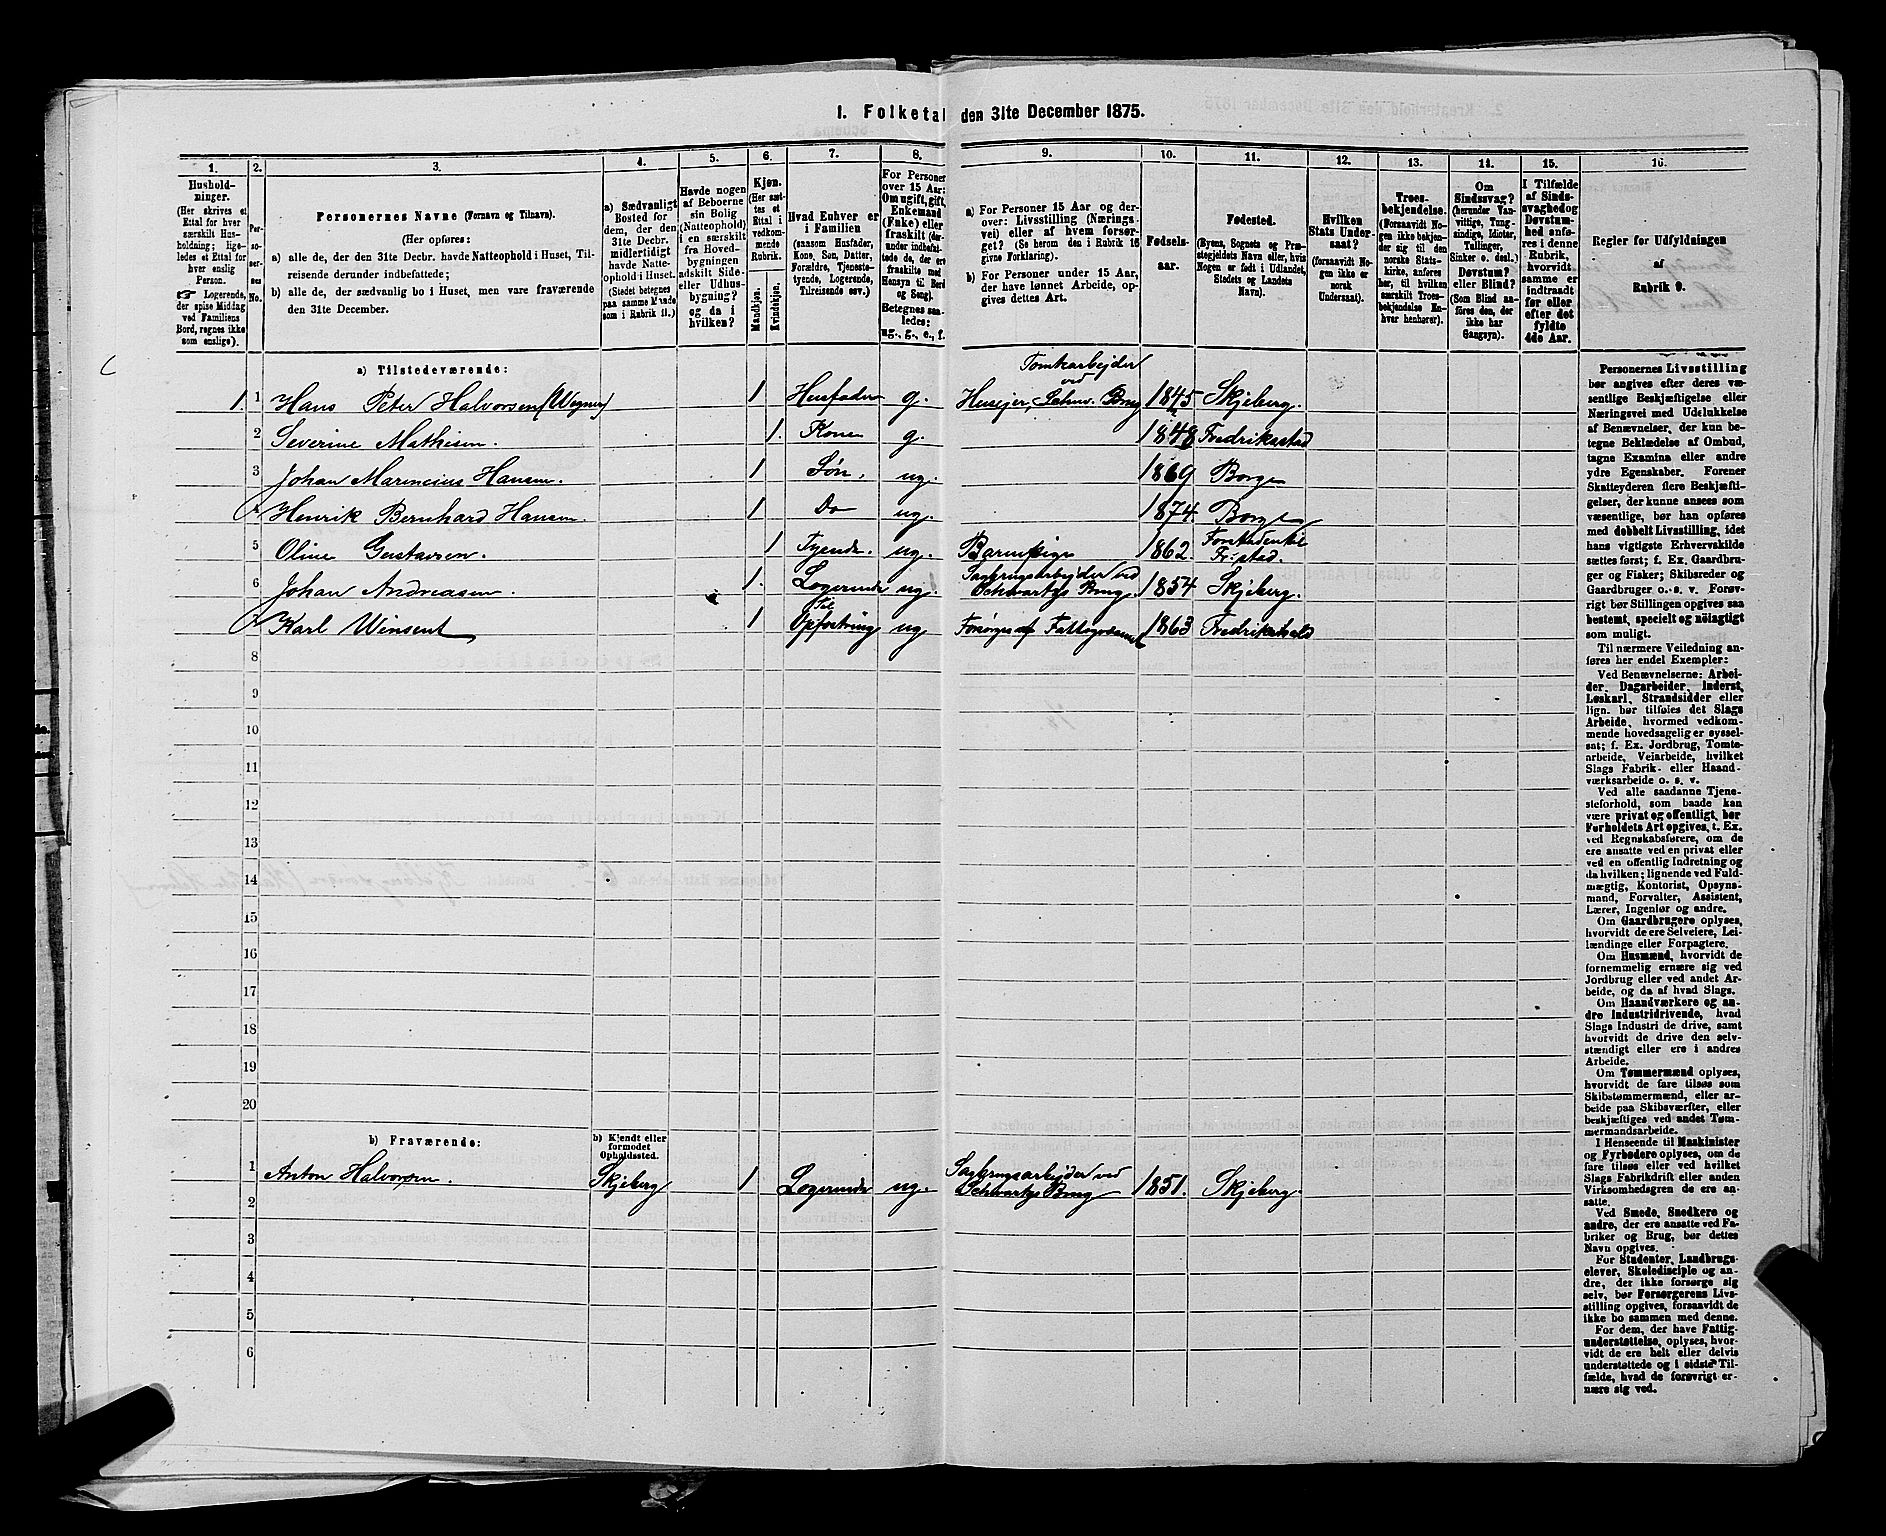 I. Folketal den 31te December 1875.
1. 2. 3. 4. 5. 6. 7. 8. 9. 10. 11. 12. 13. 14. 15. 16.
Hushold-
ninger.
(Her skrives et
Ettal for hver
særskilt Hus-
holdning; lige-
ledes et Ettal for
hver enslig
Person.
☞ Logerende,
der spise Middag
ved Familiens
Bord, regnes ikke
som enslige).
Per-
so-
ner-
nes
No.
Personernes Navne (Fornavn og Tilnavn).
(Her opføres:
a) alle de, der den 31te Decbr. havde Natteophold i Huset, Til-
reisende derunder indbefattede;
b) alle de, der sædvanlig bo i Huset, men vare fraværende
den 31te December.
a) Sædvanligt
Bosted for
dem, der den
31te Decbr.
midlertidigt
havde Natte-
ophold i Huset.
(Stedet betegnes
paa samme Maade
som i Rubrik 11.)
Havde nogen
af Beboerne
sin Bolig
(Natteophold)
i en særskilt
fra Hoved-
bygningen
adskilt Side-
eller Udhus-
bygning?
og da i
hvilken?
Kjøn.
(Her sæt-
tes et
Ettal i
vedkom-
mende
Rubrik.
Mandkjøn.
Kvindekjøn.
Hvad Enhver er
i Familien
(saasom Husfader,
Kone, Søn, Datter,
Forældre, Tjeneste-
tyende, Logerende,
Tilreisende osv.)
For Personer
over 15 Aar:
Om ugift, gift,
Enkemand
(Enke) eller
fraskilt (der-
under indbefat-
tede de, der ere
fraskilte med
Hensyn til Bord
og Seng).
Betegnes saa-
ledes:
ug., g., e., f.
a) For Personer 15 Aar og der-
over: Livsstilling (Nærings-
vei) eller af hvem forsør-
get? (Se herom den i Rubrik 16
givne Forklaring).
b) For Personer under 15 Aar,
der have lønnet Arbeide, op-
gives dettes Art.
Fødsels-
aar.
Fødested.
(Byens, Sognets og Præ-
stegjeldets Navn eller, hvis
Nogen er født i Udlandet,
Stedets og Landets
Navn).
Hvilken
Stats Under-
saat?
(forsaavidt No-
gen ikke er
norsk
Undersaat).
Troes-
bekjendelse.
(Forsaavidt No-
gen ikke bekjen-
der sig til den
norske Stats-
kirke, anføres
her, til hvilken
særskilt Troes-
bekjendelse En-
hver henhører).
Om
Sindssvag?
(herunder Van-
vittige, Tung-
sindige, Idioter,
Tullinger,
Sinker o. desl.)
Døvstum?
eller Blind?
(Som Blind an-
føres den, der
ikke har
Gangsyn).
I Tilfælde
af Sinds-
svaghed og
Døvstum-
hed anfø-
res i denne
Rubrik,
hvorvidt
samme er
indtraadt
før eller
efter det
fyldte
4de Aar.
Regler for Udfyldningen
af
Rubrik 9.
a) Tilstedeværende:
1. 1 Hans Peter Halvorsen (Wegner) 1 Husfader g. Huseier, Tomtearbejder ved Schw. Brug 1845 Skjeberg.
2 Severine Mathisen. 1. Kone g. 1848 Fredrikstad
3 Johan Marincius Hansen. 1 Søn, ug. 1869 Borge
4 Henrik Bernhard Hansen 1 Do ug. 1874. Borge
5 Oline Gustavsen. 1 Tyende. ug. Barnepige 1862. Forstaden til Fr.stad.
6 Johan Andreasen 1. Logerende ug. Sagbrugsarbejder ved Schwartz Brug. 1854 Skjeberg.
Karl Winsent 1 Til Opfostring ug Forsørges af Fattigvæsenet 1863 Fredrikshald
8
9
10
11
12
13
14
15
16
17
18
19
20
b) Fraværende:
b) Kjendt eller
formodet
Opholdssted.
1 Anton Halvorsen. Skjeberg 1 Logerende ug. Sagbrugsarbejder ved Schwartz Brug 1851. Skjeberg.
2
3
4
5
6
Personernes Livsstilling
bør angives efter deres væ-
sentlige Beskjæftigelse eller
Næringsvei med Udelukkelse
af Benævnelser, der kun be-
tegne Beklædelse af Ombud,
tagne Examina eller andre
ydre Egenskaber. Forener
Skatteyderen flere Beskjæfti-
gelser, der kunne ansees som
væsentlige, bør han opføres
med dobbelt Livsstilling, idet
hans vigtigste Erhvervskilde
sættes først; f. Ex. Gaardbru-
ger og Fisker; Skibsreder og
Gaardbruger o. s. v. Forøv-
rigt bør Stillingen opgives saa
bestemt, specielt og nøiagtigt
som muligt.
Til nærmere Veiledning an-
føres her endel Exempler:
Ved Benævnelserne: Arbei-
der, Dagarbeider, Inderst,
Løskarl, Strandsidder eller
lign. bør tilføies det Slags
Arbeide, hvormed vedkom-
mende hovedsagelig er syssel-
sat; f. Ex. Jordbrug, Tomte-
arbeide, Veiarbeide, hvilket
Slags Fabrik- eller Haand-
værksarbeide o. s. v.
Ved alle saadanne Tjene-
steforhold, som baade kan
være privat og offentligt, bør
Forholdets Art opgives, t. Ex.
ved Regnskabsførere, om de
ere ansatte ved en privat eller
ved en offentlig Indretning og
da hvilken; lignende ved Fuld-
mægtig, Kontorist, Opsyns-
mand, Forvalter, Assistent,
Lærer, Ingeniør og andre.
Om Gaardbrugere oplyses,
hvorvidt de ere Selveiere, Lei-
lændinge eller Forpagtere.
Om Husmænd, hvorvidt de
fornemmelig ernære sig ved
Jordbrug eller ved andet Ar-
beide, og da af hvad Slags.
Om Haandværkere og an-
dre Industridrivende, hvad
Slags Industri de drive, samt
hvorvidt de drive den selv-
stændigt eller ere i andres
Arbeide.
Om Tømmermænd oplyses,
hvorvidt de fare tilsøs som
Skibstømmermænd, eller ar-
beide paa Skibsværfter, eller
beskjæftiges ved andet Tøm-
mermandsarbeide.
I Henseende til Maskinister
og Fyrbødere oplyses, om de
fare tilsøs eller ved hvilket
Slags Fabrikdrift eller anden
Virksomhedsgren de ere an-
satte.
Ved Smede, Snedkere og
andre, der ere ansatte ved Fa-
briker og Brug, bør dettes
Navn opgives.
For Studenter, Landbrugs-
elever, Skoledisciple og an-
dre, der ikke forsørge sig
selv, bør Forsørgerens Livs-
stilling opgives, forsaavidt de
ikke bo sammen med denne.
For dem, der have Fattig-
understøttelse, oplyses, hvor-
vidt de ere helt eller delvis
understøttede og i sidste Til-
fælde, hvad de forøvrigt er-
nære sig ved.